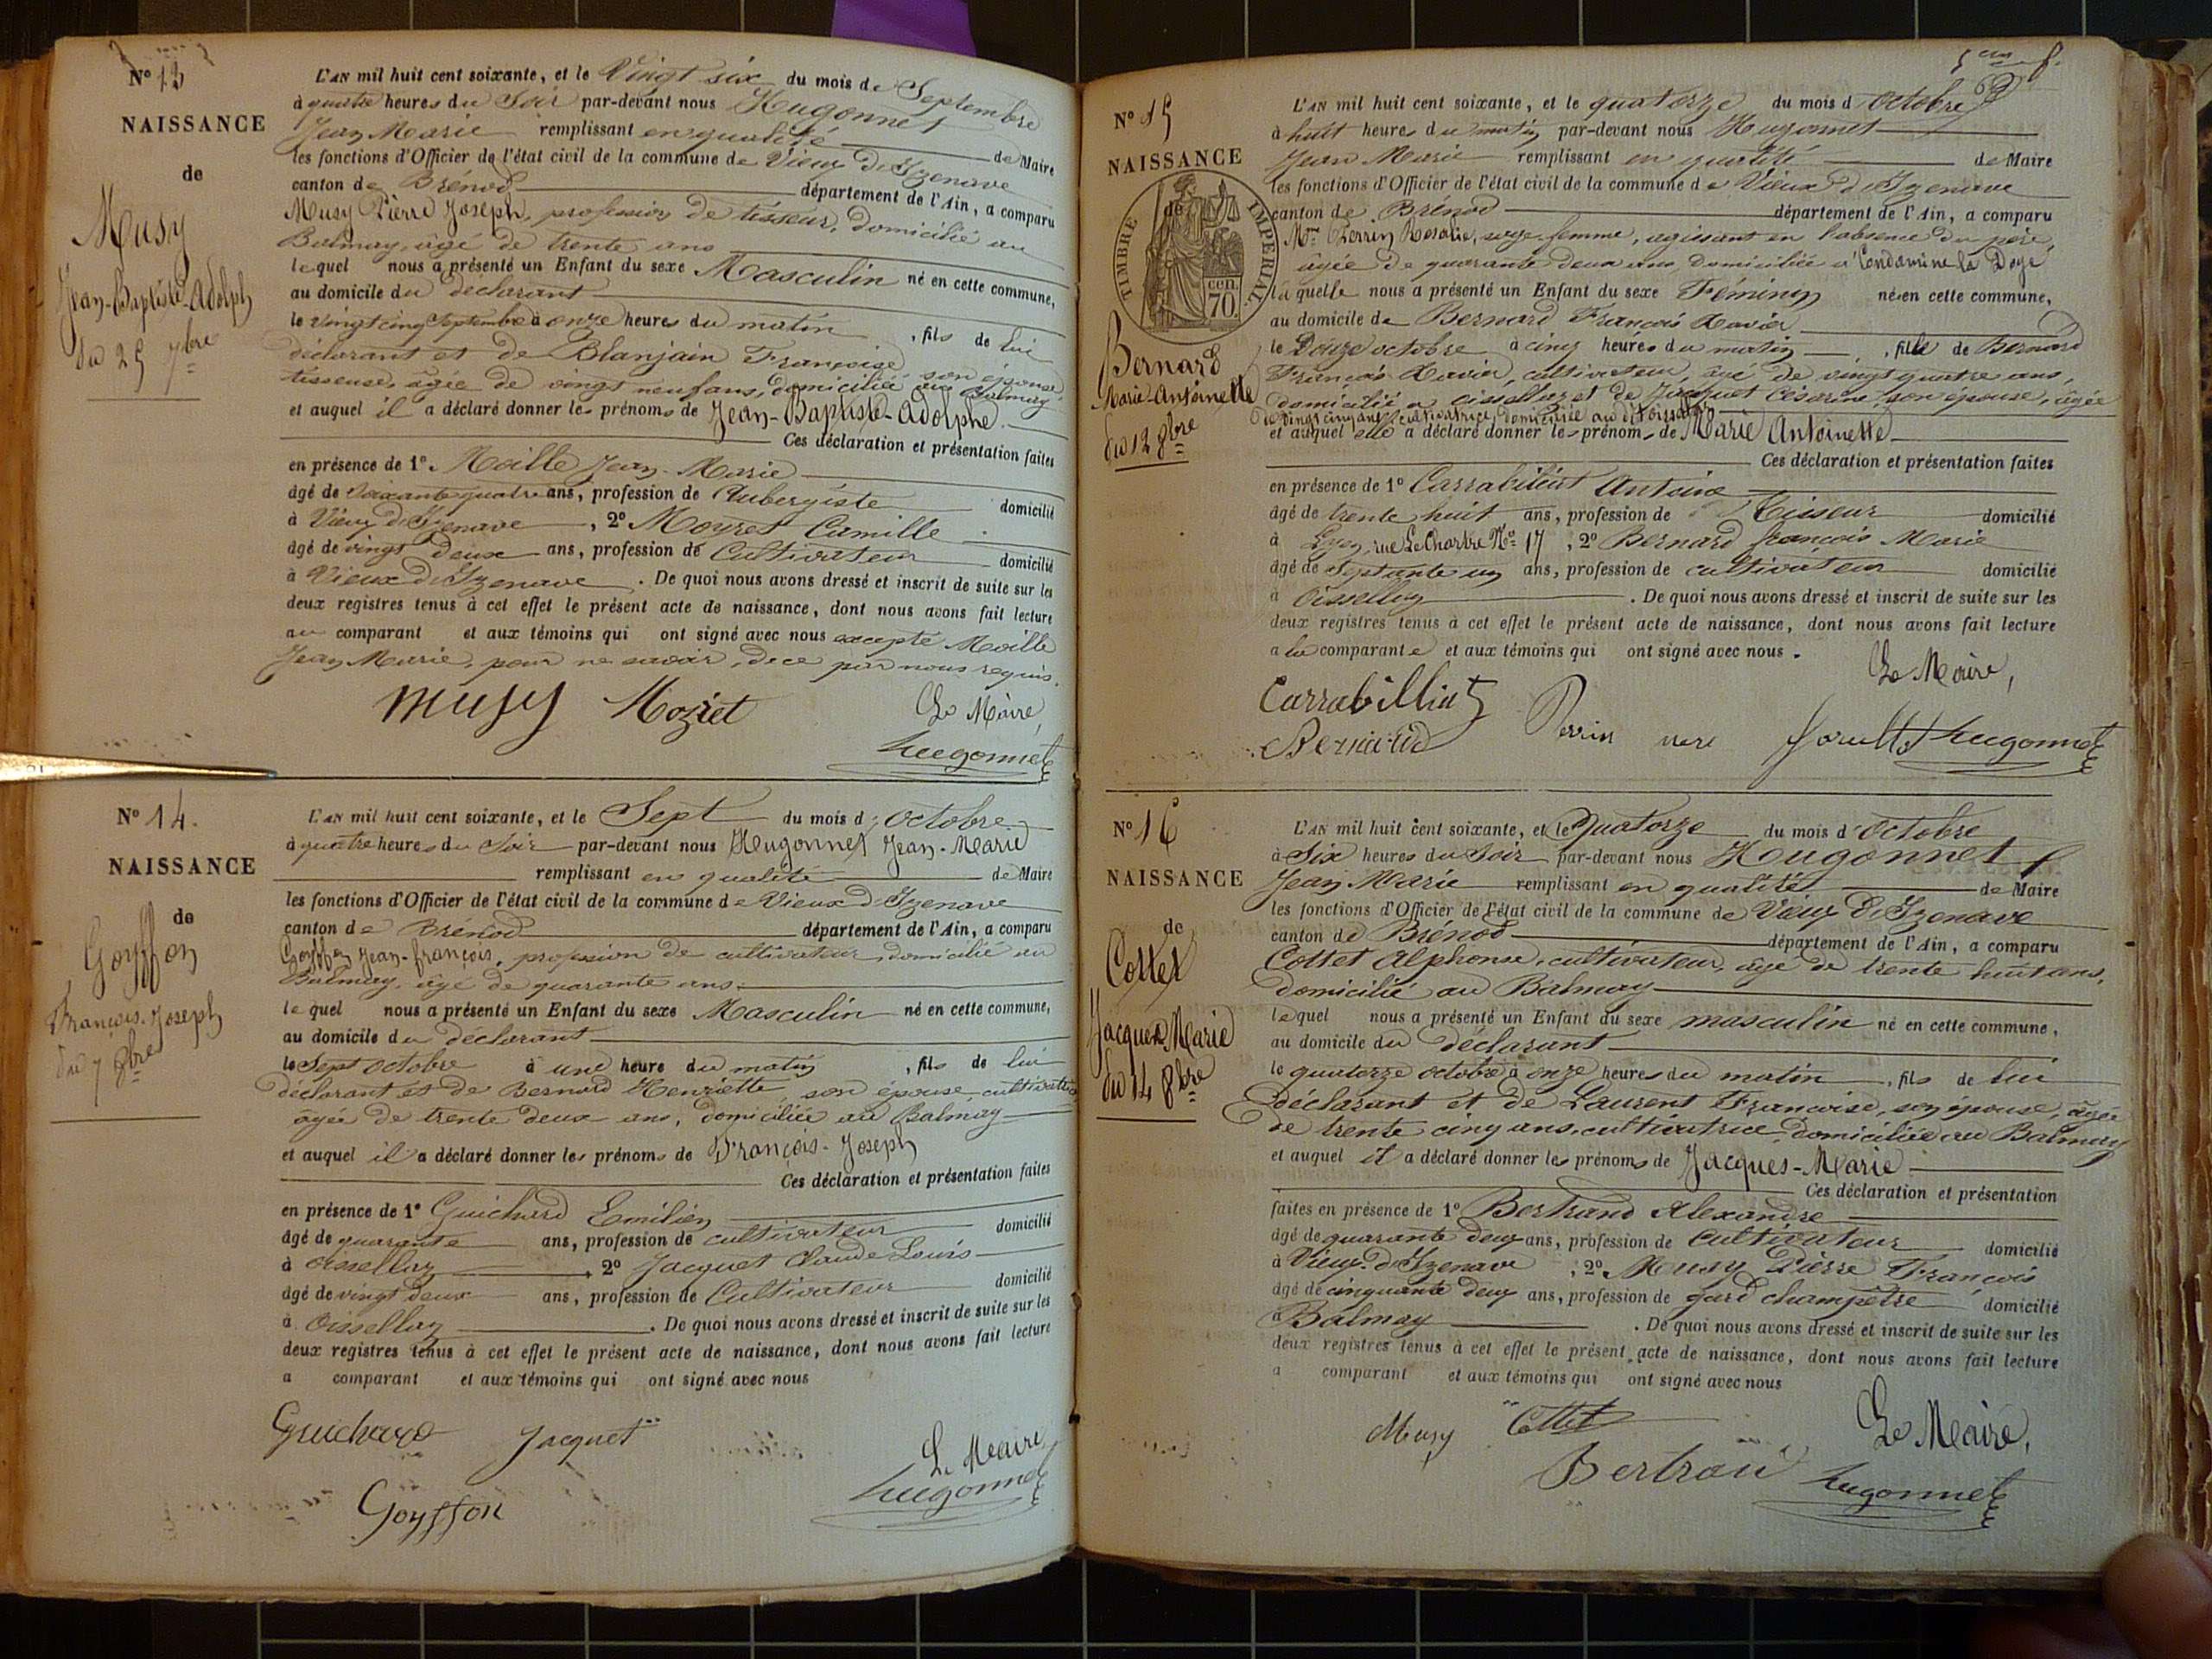 N° 13
NAISSANCE
de
Musy
Jean-Baptiste-Adolph
du 25 7bre
L'AN mil huit cent soixante, et le Vingt six du mois de Septembre
à quatre heures du Soir par-devant nous Hugonnet
Jean Marie remplissant en qualité de Maire
les fonctions d'Officier de l'état civil de la commune de Vieux d'Izenave
canton de Brénod département de l'Ain, a comparu
Musy Pierre Joseph, profession de tisseur, domicilié au
Balmay, âgé de trente ans
lequel nous a présenté un Enfant du sexe Masculin né en cette commune,
au domicile du déclarant
le vingt cinq Septembre à onze heures du matin, fils de lui
déclarant et de Blanjain Françoise, son épouse
tisseuse, âgée de vingt neuf ans, domiciliée au Balmay
et auquel il a déclaré donner les prénoms de Jean-Baptiste-Adolphe.
Ces déclaration et présentation faites
en présence de 1°. Moille Jean-Marie
âgé de soixante quatre ans, profession de Aubergiste domicilié
à Vieux d'Izenave, 2° Moyret Camille
âgé de vingt deux ans, profession de Cultivateur domicilié
à Vieux d'Izenave. De quoi nous avons dressé et inscrit de suite sur les
deux registres tenus à cet effet le présent acte de naissance, dont nous avons fait lecture
au comparant et aux témoins qui ont signé avec nous excepté Moille
Jean Marie, pour ne savoir, de ce par nous requis.
Musy Moziet Le Maire,
Hugonnet
N° 14.
NAISSANCE
de
Goyffon
François-Joseph
du 7 8bre
L'AN mil huit cent soixante, et le Sept du mois d'Octobre
à quatre heures du Soir par-devant nous Hugonnet Jean-Marie
remplissant en qualité de Maire
les fonctions d'Officier de l'état civil de la commune de Vieux d'Izenave
canton de Brénod département de l'Ain, a comparu
Goyffon Jean-françois, profession de cultivateur, domicilié au
Balmay, âgé de quarante ans.
lequel nous a présenté un Enfant du sexe Masculin né en cette commune,
au domicile du déclarant
le Sept octobre à une heure du matin, fils de lui
déclarant et de Bernard Henriette son épouse, cultivatrice
âgée de trente deux ans, domiciliée au Balmay
et auquel il a déclaré donner les prénoms de François-Joseph
Ces déclaration et présentation faites
en présence de 1° Guichard Emilien
âgé de quarante ans, profession de cultivateur domicilié
à Oissellaz, 2° Jacquet Claude Louis
âgé de vingt deux ans, profession de Cultivateur domicilié
à Oissellaz. De quoi nous avons dressé et inscrit de suite sur les
deux registres tenus à cet effet le présent acte de naissance, dont nous avons fait lecture
a comparant et aux témoins qui ont signé avec nous
Guichard Jacquet Le Maire
Goyffon Hugonnet
N° 15
NAISSANCE
de
TIMBRE IMPERIAL
70 cen.
Bernard
Marie-Antoinette
du 12 8bre
L'AN mil huit cent soixante, et le quatorze du mois d'Octobre
à huit heures du matin par-devant nous Hugonnet
Jean Marie remplissant en qualité de Maire
les fonctions d'Officier de l'état civil de la commune de Vieux d'Izenave
canton de Brénod département de l'Ain, a comparu
Me Perrin Rosalie, sage-femme, agissant en l'absence du père,
âgée de quarante deux ans, domiciliée à Condamine la Doye
laquelle nous a présenté un Enfant du sexe Féminin née en cette commune,
au domicile de Bernard François Xavier
le Douze octobre à cinq heures du matin, fille de Bernard
François Xavier, cultivateur, âgé de vingt quatre ans,
domicilié à oissellaz et de Jacquet Césarine, son épouse, âgée
de vingt cinq ans, cultivatrice, domiciliée au dit oissellaz
et auquel elle a déclaré donner les prénoms de Marie Antoinette
Ces déclaration et présentation faites
en présence de 1° Carrabilliat Antoine
âgé de trente huit ans, profession de Tisseur domicilié
à Lyon, rue Le Chartre N° 17, 2° Bernard françois Marie
âgé de Septante un ans, profession de cultivateur domicilié
à Oissellaz. De quoi nous avons dressé et inscrit de suite sur les
deux registres tenus à cet effet le présent acte de naissance, dont nous avons fait lecture
a la comparante et aux témoins qui ont signé avec nous.
Le Maire,
Carrabilliat Perrin Hugonnet
Bernard
N° 16
NAISSANCE
de
Cottet
Jacques Marie
du 14 8bre
L'AN mil huit cent soixante, et le Quatorze du mois d'Octobre
à Six heures du Soir par-devant nous Hougonnet
Jean Marie remplissant en qualité de Maire
les fonctions d'Officier de l'état civil de la commune de Vieux d'Izenave
canton de Brénod département de l'Ain, a comparu
Cottet Alphonse, cultivateur, âgé de trente huit ans,
domicilié au Balmay
lequel nous a présenté un Enfant du sexe masculin né en cette commune,
au domicile du déclarant
le quatorze octobre à onze heures du matin, fils de lui
déclarant et de Laurent Françoise, son épouse, âgée
de trente cinq ans, cultivatrice, domiciliée au Balmay
et auquel il a déclaré donner les prénoms de Jacques-Marie
Ces déclaration et présentation
faites en présence de 1° Bertrand Alexandre
âgé de quarante deux ans, profession de Cultivateur domicilié
à Vieux d'Izenave, 2° Musy Pierre François
âgé de cinquante deux ans, profession de gard champêtre domicilié
à Balmay. De quoi nous avons dressé et inscrit de suite sur les
deux registres tenus à cet effet le présent acte de naissance, dont nous avons fait lecture
a comparant et aux témoins qui ont signé avec nous
Musy Cottet Le Maire,
Bertran Hugonnet